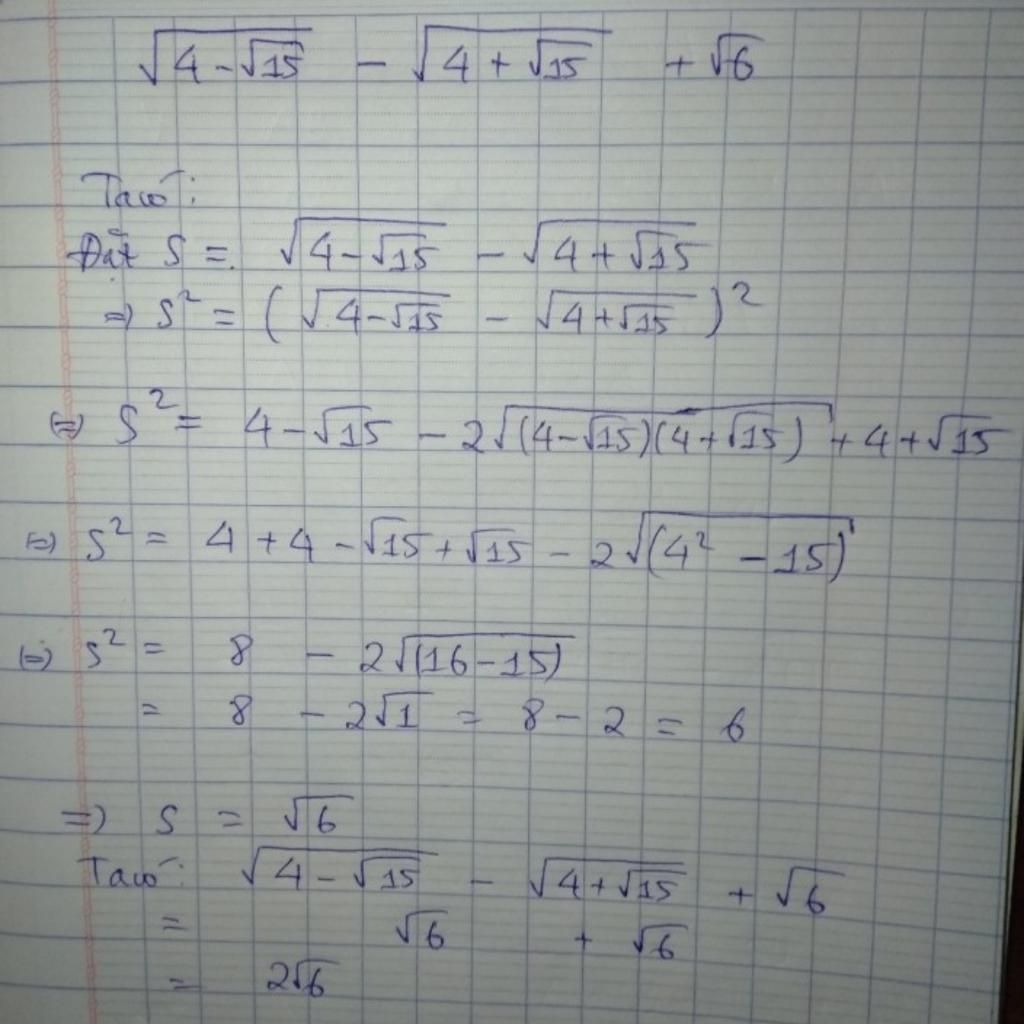 √(4-√15) - √(4+√15) + √6
Ta có:
Đặt S = √(4-√15) - √(4+√15)
⇒ S² = (√(4-√15) - √(4+√15))²
⇔ S² = 4-√15 - 2√((4-√15)(4+√15)) + 4+√15
⇔ S² = 4+4-√15+√15 - 2√(4²-15)
⇔ S² = 8 - 2√(16-15)
= 8 - 2√1 = 8-2 = 6
⇒ S = √6
Ta có: √(4-√15) - √(4+√15) + √6
= √6 + √6
= 2√6